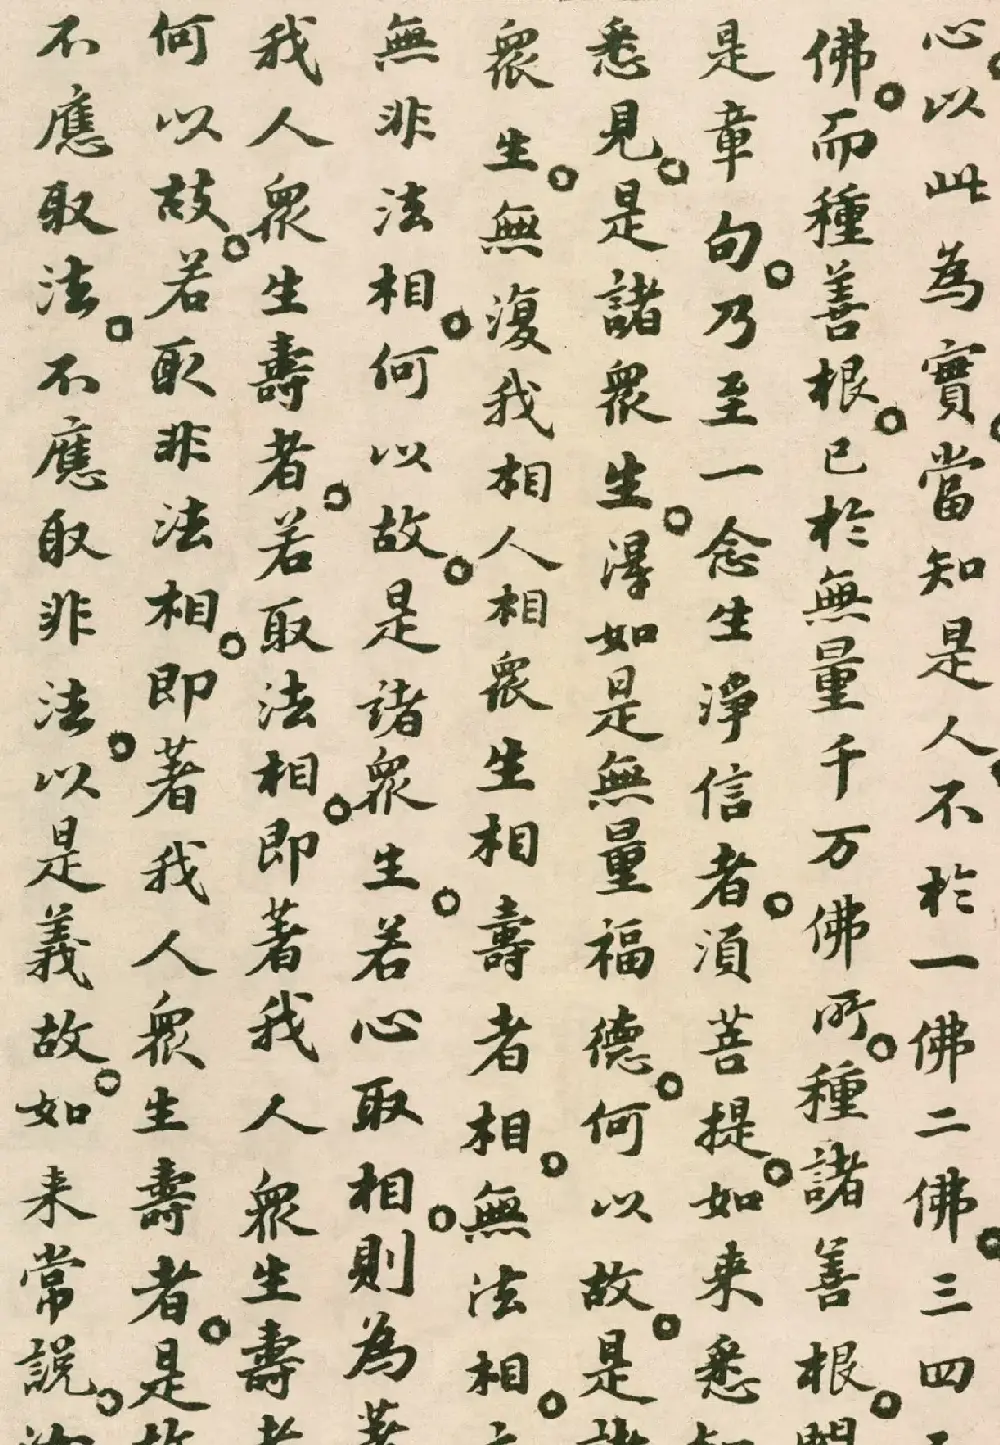 心。以此為實。當知是人。不於一佛二佛。三四
佛。而種善根。已於無量千万佛所。種諸善根。聞
是章句。乃至一念生淨信者。須菩提。如来悉知
悉見。是諸眾生。得如是無量福德。何以故。是諸
眾生。無復我相人相眾生相壽者相。無法相。亦
無非法相。何以故。是諸眾生。若心取相。則為著
我人眾生壽者。若取法相。即著我人眾生壽者
何以故。若取非法相。即著我人眾生壽者。是故
不應取法。不應取非法。以是義故。如来常說。汝